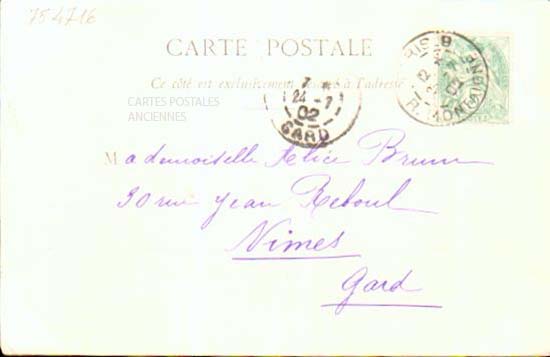 754716
CARTE POSTALE
Ce côté est exclusivement réservé à l'adresse
CARTES POSTALES
ANCIENNES
24 -7
02
GARD
Mademoiselle Alice Brun
30 rue Jean Reboul
Nimes
Gard